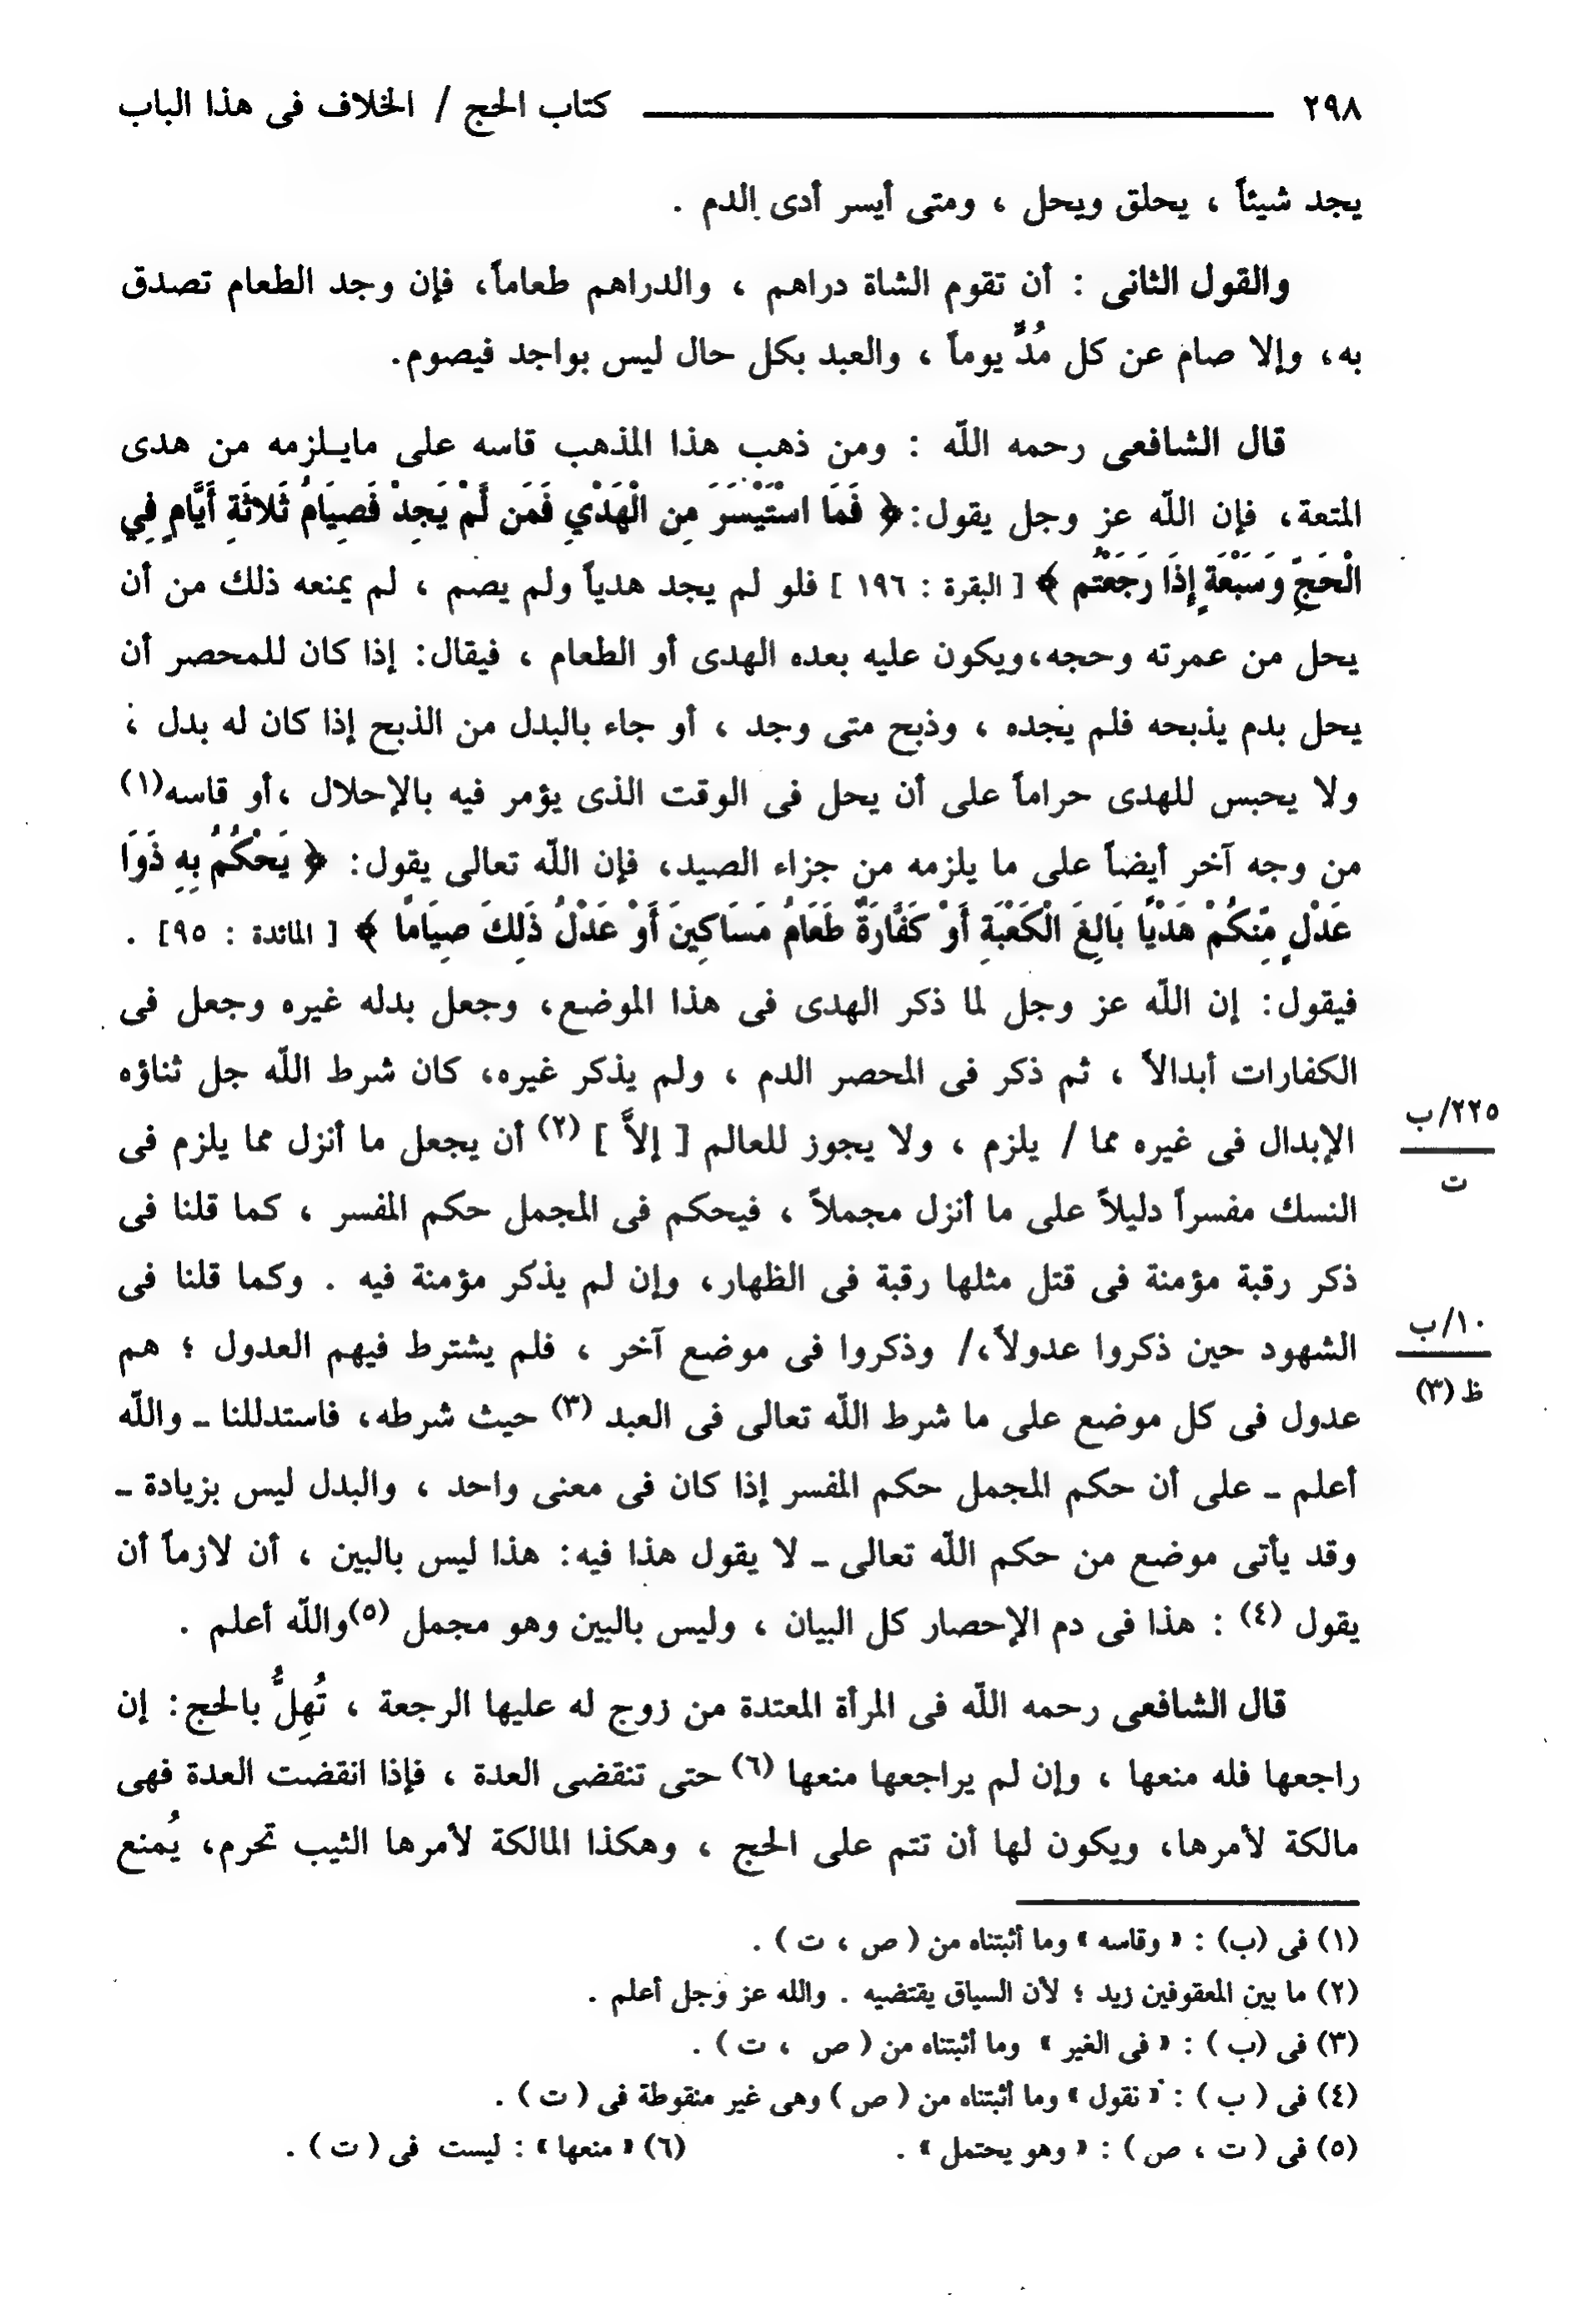 ٢٩٨ ــــــــــــــ كتاب الحج / الخلاف فى هذا الباب
يجد شيئاً ، يحلق ويحل ، ومتى أيسر أدى الدم .
والقول الثانى : أن تقوم الشاة دراهم ، والدراهم طعاماً، فإن وجد الطعام تصدق
به، وإلا صام عن كل مُدٍّ يوماً ، والعبد بكل حال ليس بواجد فيصوم.
قال الشافعى رحمه اللّه : ومن ذهب هذا المذهب قاسه على مايلزمه من هدى
المتعة، فإن اللّه عز وجل يقول: ﴿ فَمَا اسْتَيْسَرَ مِنَ الْهَدْيِ فَمَن لَّمْ يَجِدْ فَصِيَامُ ثَلاثَةِ أَيَّامٍ فِي
الْحَجِّ وَسَبْعَةٍ إِذَا رَجَعْتُم ﴾ [ البقرة : ١٩٦ ] فلو لم يجد هدياً ولم يصم ، لم يمنعه ذلك من أن
يحل من عمرته وحجه،ويكون عليه بعده الهدى أو الطعام ، فيقال: إذا كان للمحصر أن
يحل بدم يذبحه فلم يجده ، وذبح متى وجد ، أو جاء بالبدل من الذبح إذا كان له بدل ،
ولا يحبس للهدى حراماً على أن يحل فى الوقت الذى يؤمر فيه بالإحلال ،أو قاسه(١)
من وجه آخر أيضاً على ما يلزمه من جزاء الصيد، فإن اللّه تعالى يقول: ﴿ يَحْكُمُ بِهِ ذَوَا
عَدْلٍ مِّنكُمْ هَدْيًا بَالِغَ الْكَعْبَةِ أَوْ كَفَّارَةٌ طَعَامُ مَسَاكِينَ أَوْ عَدْلُ ذَلِكَ صِيَامًا ﴾ [ المائدة : ٩٥] .
فيقول: إن اللّه عز وجل لما ذكر الهدى فى هذا الموضع، وجعل بدله غيره وجعل فى
الكفارات أبدالاً ، ثم ذكر فى المحصر الدم ، ولم يذكر غيره، كان شرط اللّه جل ثناؤه
الإبدال فى غيره مما / يلزم ، ولا يجوز للعالم [ إلاَّ ] (٢) أن يجعل ما أنزل مما يلزم فى
٢٢٥/ب
ت
النسك مفسراً دليلاً على ما أنزل مجملاً ، فيحكم فى المجمل حكم المفسر ، كما قلنا فى
ذكر رقبة مؤمنة فى قتل مثلها رقبة فى الظهار، وإن لم يذكر مؤمنة فيه . وكما قلنا فى
الشهود حين ذكروا عدولاً،/ وذكروا فى موضع آخر ، فلم يشترط فيهم العدول ؛ هم
١٠/ب
ظ (٣)
عدول فى كل موضع على ما شرط اللّه تعالى فى العبد (٣) حيث شرطه، فاستدللنا ــ واللّه
أعلم ــ على أن حكم المجمل حكم المفسر إذا كان فى معنى واحد ، والبدل ليس بزيادة ــ
وقد يأتى موضع من حكم اللّه تعالى ــ لا يقول هذا فيه: هذا ليس بالبين ، أن لازماً أن
يقول (٤) : هذا فى دم الإحصار كل البيان ، وليس بالبين وهو مجمل (٥)واللّه أعلم .
قال الشافعى رحمه اللّه فى المرأة المعتدة من زوج له عليها الرجعة ، تُهِلُّ بالحج: إن
راجعها فله منعها ، وإن لم يراجعها منعها (٦) حتى تنقضى العدة ، فإذا انقضت العدة فهى
مالكة لأمرها، ويكون لها أن تتم على الحج ، وهكذا المالكة لأمرها الثيب تحرم، يُمنع
(١) فى (ب) : « وقاسه » وما أثبتناه من ( ص ، ت ) .
(٢) ما بين المعقوفين زيد ؛ لأن السياق يقتضيه . والله عز وجل أعلم .
(٣) فى (ب ) : « فى الغير » وما أثبتناه من ( ص ، ت ) .
(٤) فى ( ب ) : « نقول » وما أثبتناه من ( ص ) وهى غير منقوطة فى ( ت ) .
(٥) فى ( ت ، ص ) : « وهو يحتمل » . (٦) « منعها » : ليست فى ( ت ) .